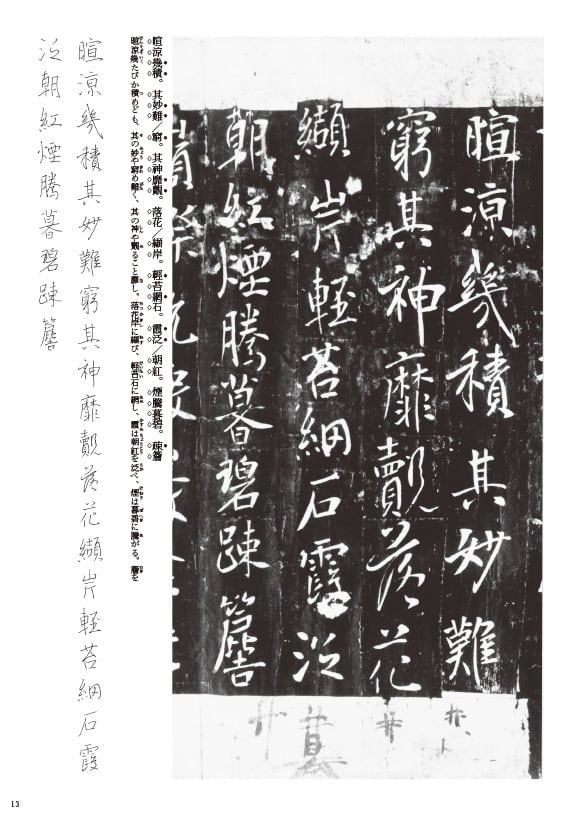 暄涼幾積其妙難
窮其神靡覿落花
纈岸軽苔網石霞泛
朝紅煙騰暮碧踈簷
暄涼幾積。其妙難／窮。其神靡覿。落花／纈岸。輕苔網石。霞泛／朝紅。煙騰暮碧。疎簷
暄涼幾たびか積めども、其の妙や窮め難く、其の神や覿ること靡し。落花岸に纈び、輕苔石に網し、霞は朝紅を泛べ、煙は暮碧に騰がる。簷を
暄涼幾積其妙難窮其神靡覿落花纈岸軽苔網石霞
泛朝紅煙騰暮碧踈簷
13